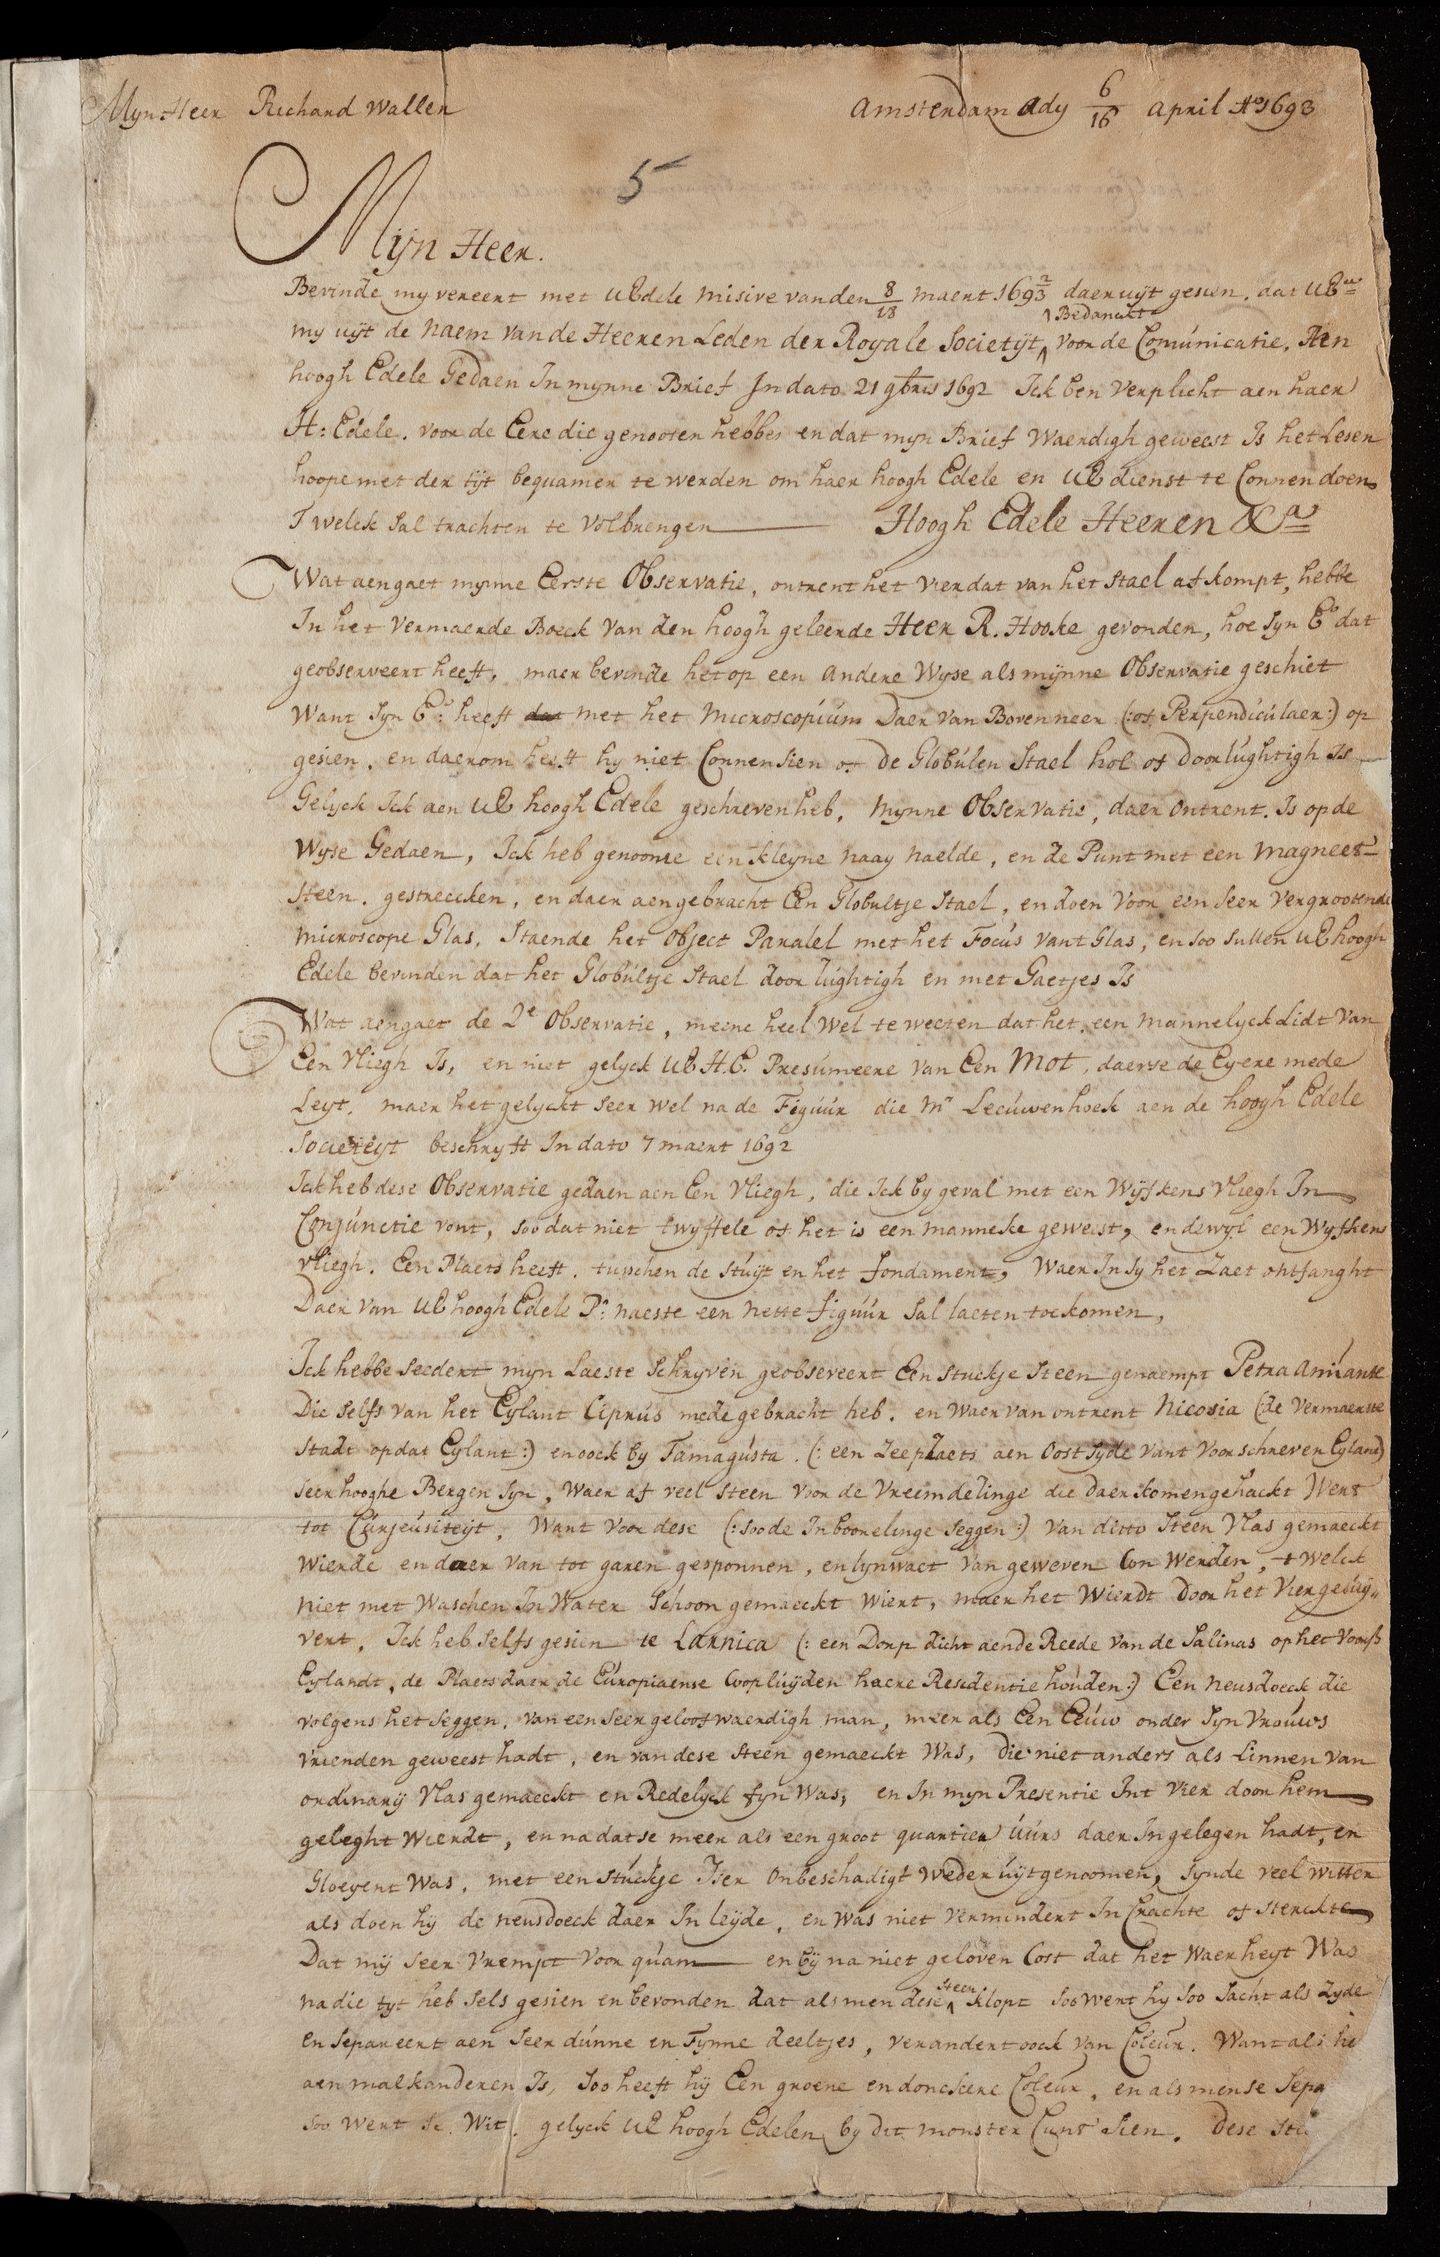 Mijn Heer Richard Waller Amsterdam Ady 6/16 April Ao 1693
5
Mijn Heer.
Bevinde my vereert met UEdele misive vanden 8/18 maert 169 2/3 daer uÿt gesien. dat UEle
my uÿt de naem vande Heeren Leden der Royale Societÿt ^ Bedanckt voor de Comúnicatie. Aen
hoogh Edele Gedaen In mynne Brief In dato 21 9bris 1692 Ick ben verplicht aen haer
H: Edele. voor de Eere die genooten hebbe, en dat mijn Brief Waerdigh geweest Is het Lesen
hoope met der tijt bequamer te werden om haer hoogh Edele en UE dienst te Connen doen
Twelck sal trachten te volbrengen Hoogh Edele Heeren &a
Wat aengaet mynne Eerste Observatie, ontrent het vier dat van het stael af kompt, hebbe
In het vermaerde Boeck van den hoogh geleerde Heer R. Hooke gevonden, hoe syn Eo dat
geobserveert heeft, maer bevinde het op een andere Wyse als mynne Observatie geschiet
Want syn Eo: heeft dat met het Microscopiúm Daer van Boven neer (:of Perpendicúlaer:) op
gesien. en daerom heeft hy niet Connen sien of de Globúlen stael hol of doorlúghtigh Is
Gelyck Ick aen UE hoogh Edele geschreven heb, Mynne Observatie, daer ontrent. Is op de
Wyse Gedaen, Ick heb genoome een kleyne naay naelde, en de Punt met een Magneet
steen. gestreecken, en daer aengebracht Een Globultje stael, en doen voor een seer vergrootende
microscope Glas, staende het object Paralel met het Focús vant Glas, en soo sullen UE hoogh
Edele bevinden dat het Globúltje stael door lúghtigh en met Gaetjes Is
Wat aengaet de 2e Observatie, meene heel wel te weeten dat het een mannelyck Lidt van
Een vliegh Is, en niet gelyck UE H.E. Presúmeere van Een Mot, daerse de Eyere mede
Leyt, maer het gelyckt seer wel na de Figúúr die Mr Leeúwenhoek aen de hoogh Edele
Societeyt beschryft In dato 7 maert 1692
Ick heb dese Observatie gedaen aen Een vliegh, die Ick by geval met een Wyfkens vliegh In
Conjúnctie vont, soo dat niet twyffele of het is een manneke geweest, en dewyl een Wyfkens
vliegh. Een Plaets heeft. tusschen de stúÿt en het fondament, Waer In sy het Zaet ontfanght
Daer van UE hoogh Edele Pr: naeste een nette figúúr sal laeten toekomen,
Ick hebbe seedert mijn Laeste schryven geobserveert Een stuckje steen genaempt Petra Amiante
Die selfs van het Eylant Ciprús mede gebracht heb. en Waer van ontrent Nicosia (de vermaerste
stadt op dat Eylant:) en oock by Famagústa. (: een Zeeplaets aen Oost syde vant voorschreven Eyland)
seer hooghe Bergen syn, Waer af veel steen voor de Vreemdelinge die daer komen gehackt Wert
tot Cúrjeúsiteÿt, Want voor dese (: soo de Inboorelinge seggen:) van ditto steen Vlas gemaeckt
Wierde en daer van tot garen gesponnen, en lynwaet van geweven Con Werden, t welck
niet met Waschen In Water schoon gemaeckt Wiert, maer het Wierdt door het Vier gesuÿ„
vert. Ick heb selfs gesien te Larnica (: een Dorp dicht aende Reede van de Salinas op het Voorsz
Eylandt, de Plaets daer de Eúropiaense Cooplúÿden haere Residentie hoúden:) Een neusdoeck die
volgens het seggen, van een seer geloofwaerdigh man, meer als Een Eeúw onder syn Vroúws
vrienden geweest hadt, en van dese steen gemaeckt Was, die niet anders als Linnen van
ordinarÿ Vlas gemaeckt en Redelyck fyn Was, en In mijn Presentie Int Vier door hem
geleght Wierdt, en na datse meer als een groot quartier úúrs daer In gelegen hadt, en
Gloeyent Was, met een stúckje Iser onbeschadigt weder uÿtgenoomen, synde veel witter
als doen hij de neusdoeck daer In leÿde, en Was niet vermindert In Crachte of sterckte
Dat mij seer Vrempt voor quam en bÿ na niet geloven Cost dat het Waerheyt Was
na die tyt heb sels gesien en bevonden dat als men dese ^ steen klopt soo wert hy soo sacht als Zyde
en separeert aen seer dúnne en Fynne deeltjes, verandert oock van Coleúr. Want als he
aen malkanderen Is, soo heeft hij Een groene en donckere Coleúr, en als mense Sepa
soo wert se. Wit. gelyck UE hoogh Edelen by dit monster Cunt sien. Dese stu